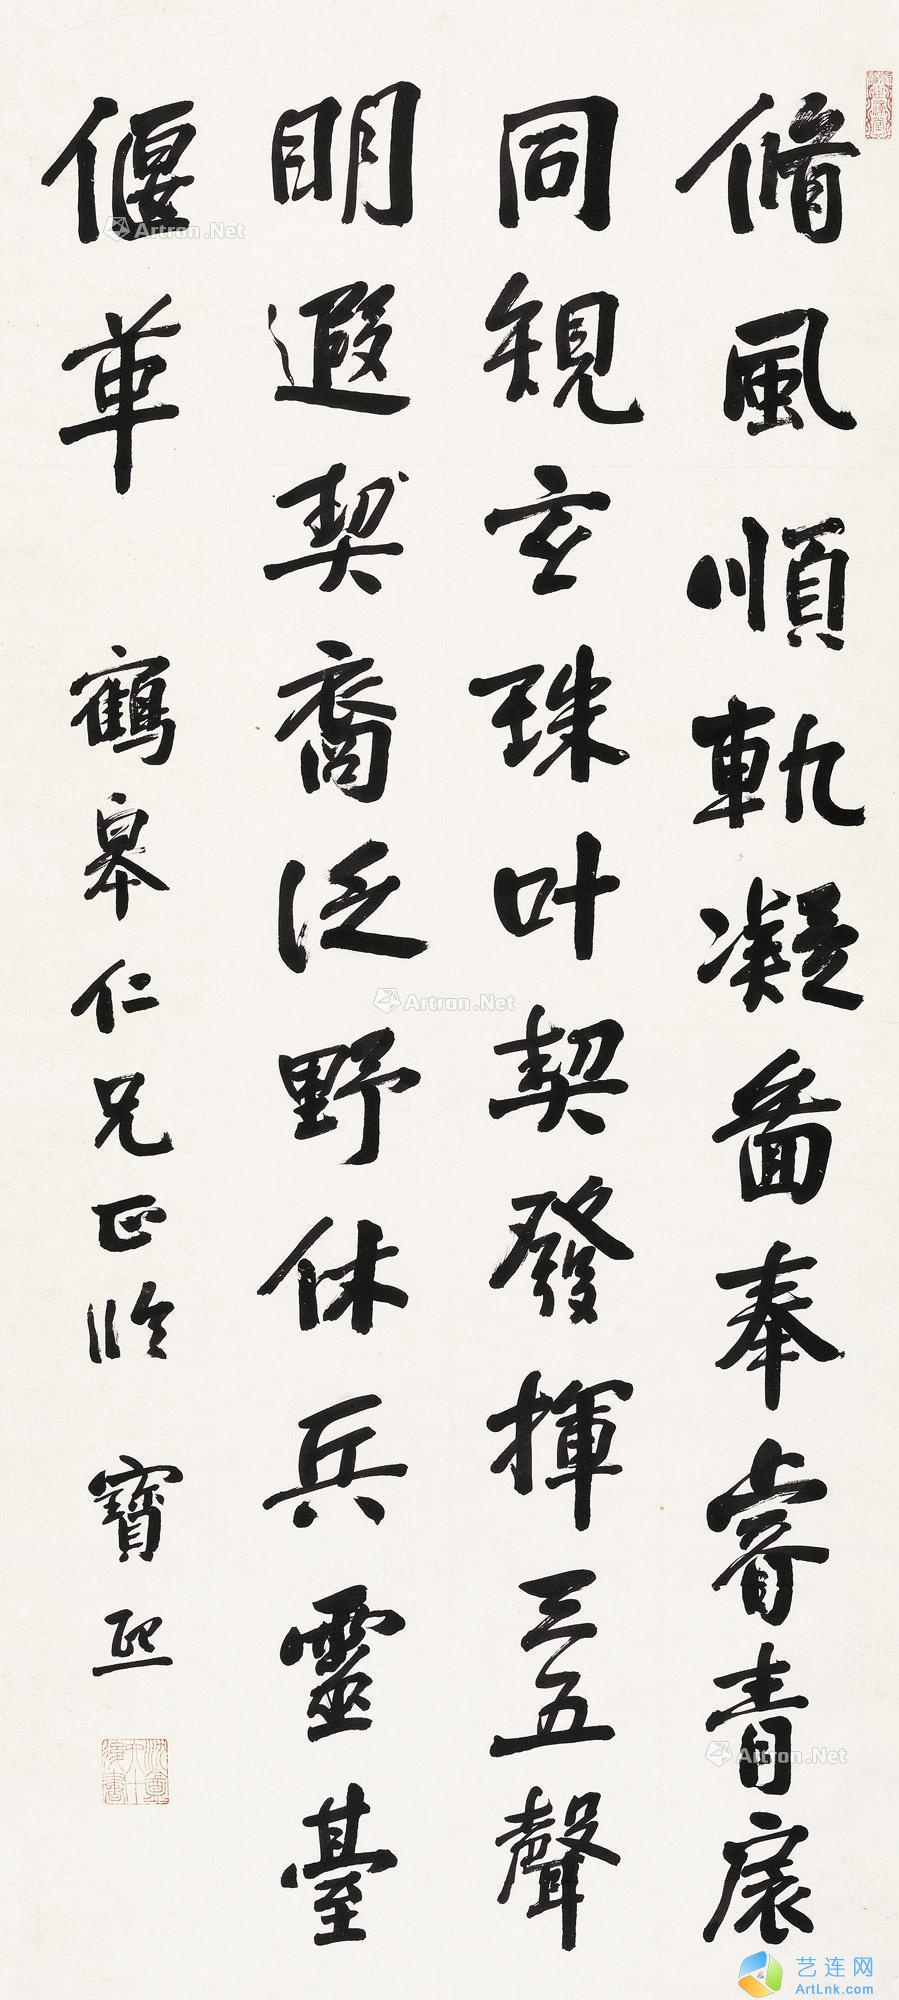 脩風順軌凝圖奉睿青扆
同規玄珠叶契發揮三五聲
明遐契裔泛野休兵靈臺
偃革
鶴皋仁兄正臨 寶熙
沈盦六十後書
Artron.Net
Artron.Net
Artron.Net
艺连网
ArtLnk.com